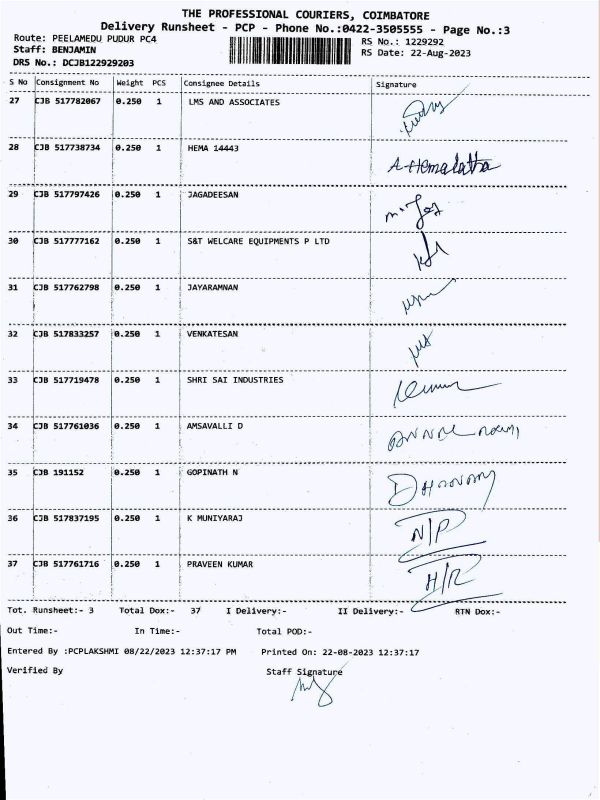 THE PROFESSIONAL COURIERS, COIMBATORE
Delivery Runsheet - PCP - Phone No.:0422-3505555 - Page No.:3
Route: PEELAMEDU PUDUR PC4 RS No.: 1229292
Staff: BENJAMIN RS Date: 22-Aug-2023
DRS No.: DCJB122929203
S No Consignment No Weight PCS Consignee Details Signature
27 CJB 517782067 0.250 1 LMS AND ASSOCIATES
28 CJB 517738734 0.250 1 HEMA 14443 A.Hemalatha
29 CJB 517797426 0.250 1 JAGADEESAN
30 CJB 517777162 0.250 1 S&T WELCARE EQUIPMENTS P LTD
31 CJB 517762798 0.250 1 JAYARAMNAN
32 CJB 517833257 0.250 1 VENKATESAN
33 CJB 517719478 0.250 1 SHRI SAI INDUSTRIES
34 CJB 517761036 0.250 1 AMSAVALLI D
35 CJB 191152 0.250 1 GOPINATH N
36 CJB 517837195 0.250 1 K MUNIYARAJ N/P
37 CJB 517761716 0.250 1 PRAVEEN KUMAR H/R
Tot. Runsheet:- 3 Total Dox:- 37 I Delivery:- II Delivery:- RTN Dox:-
Out Time:- In Time:- Total POD:-
Entered By :PCPLAKSHMI 08/22/2023 12:37:17 PM Printed On: 22-08-2023 12:37:17
Verified By Staff Signature